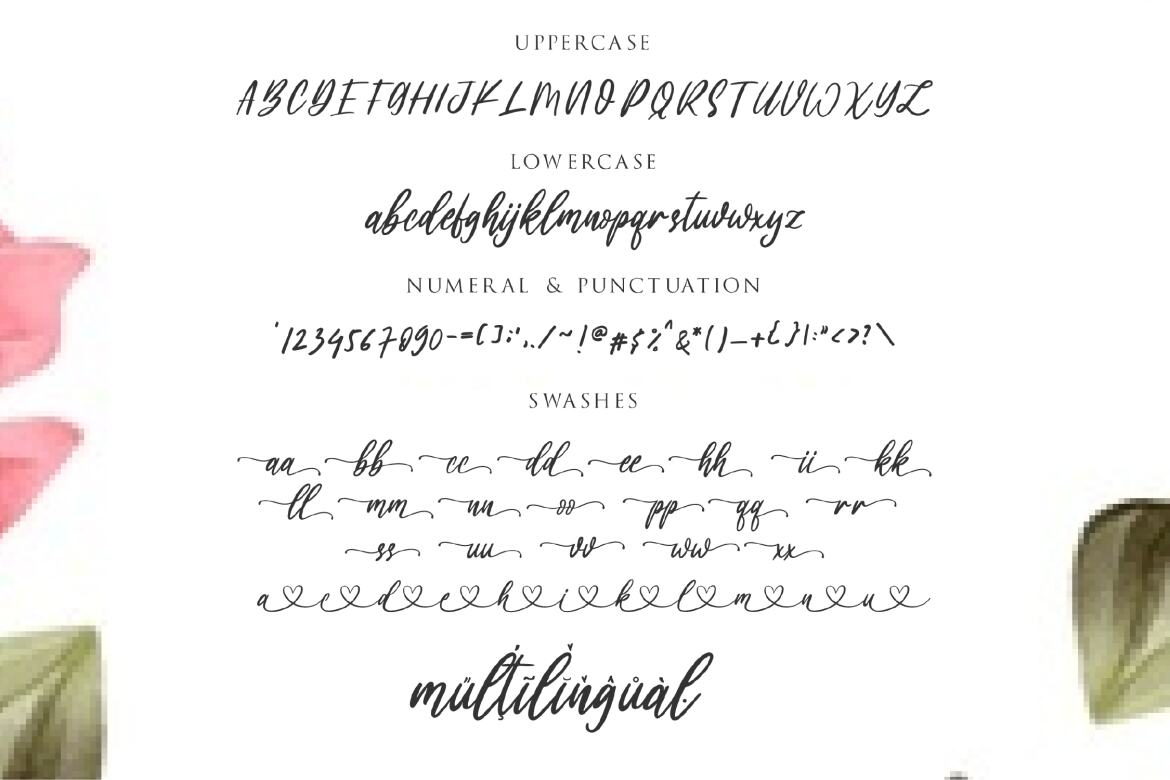 UPPERCASE
ABCDEFGHIJKLMNOPQRSTUVWXYZ
LOWERCASE
abcdefghijklmnopqrstuvwxyz
NUMERAL & PUNCTUATION
`1234567890-=[];',./~!@#$%^&*()_+{}|:"<>?\
SWASHES
aa bb cc dd ee hh ii kk
ll mm nn oo pp qq rr
ss uu vv ww xx
a c d e h i k l m n u
müļťĩlĭňĝůàŀ